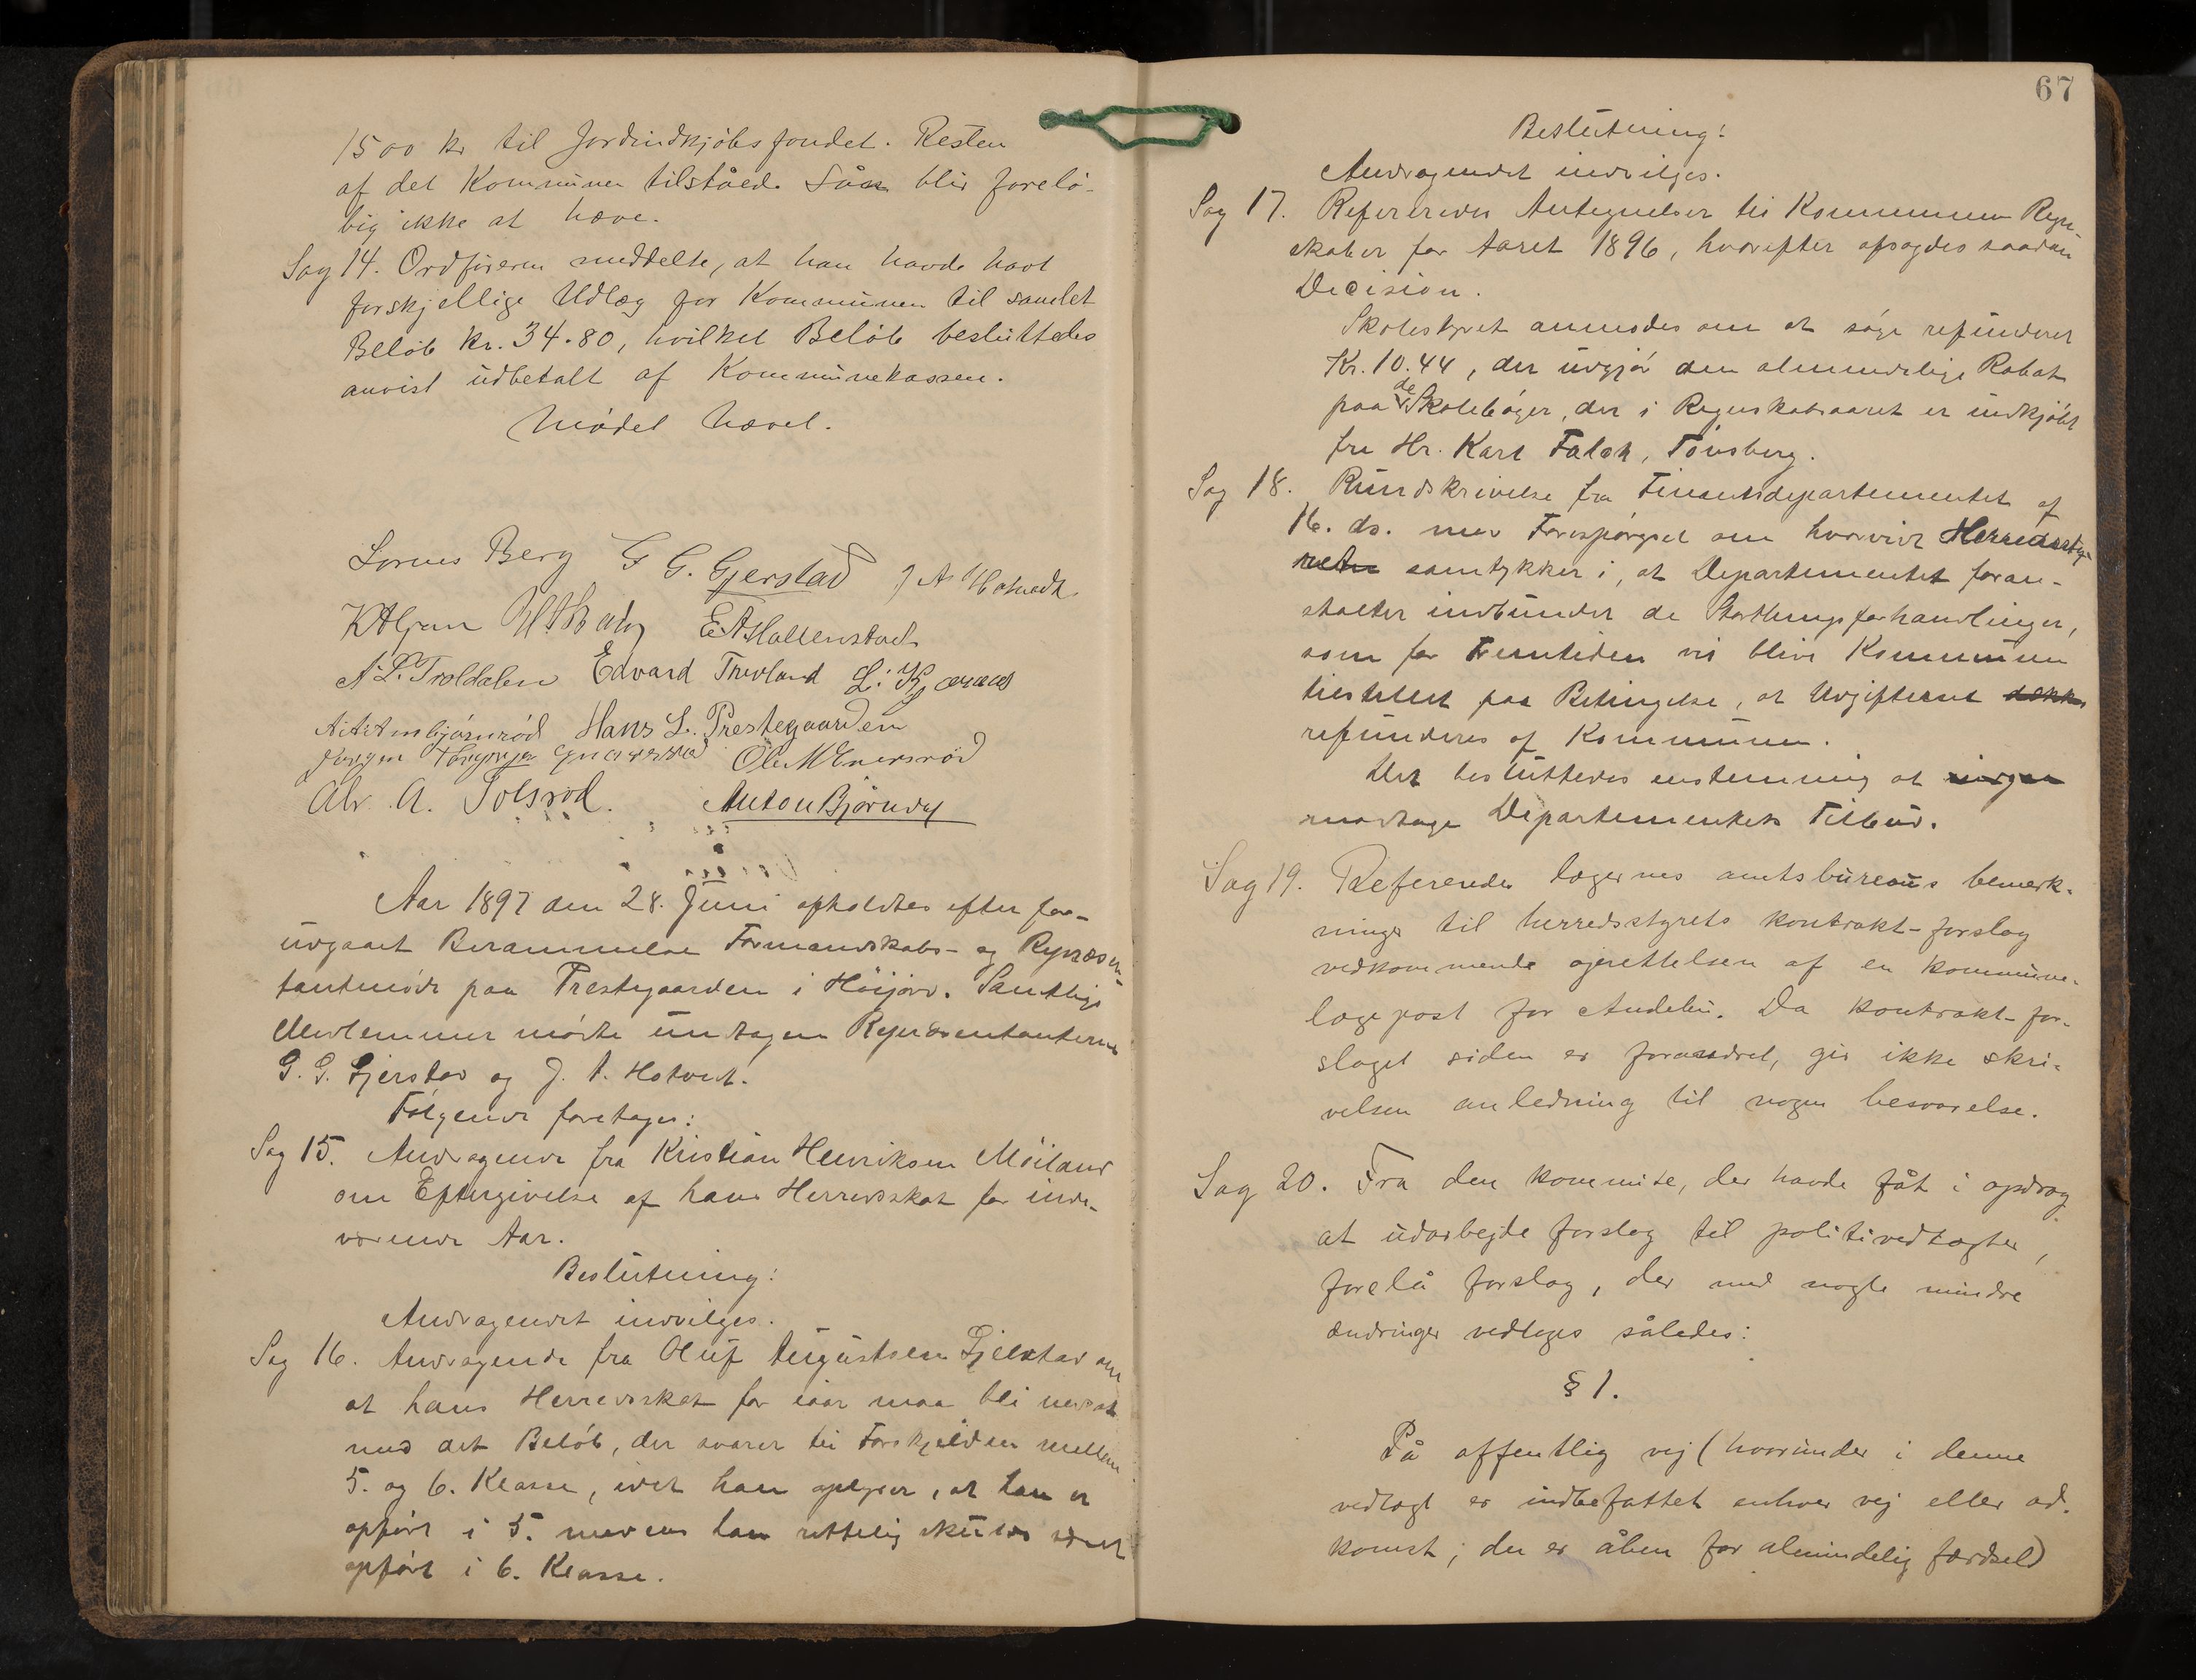 1500 kr til Jordindkjøbsfondet. Resten
af det Kommunen tilståede Lån blir forelø-
big ikke at hæve.
Sag 14. Ordføreren meddelte, at han havde havt
forskjellige Udlæg for Kommunen til samlet
Beløb kr. 34.80, hvilket Beløb besluttedes
anvist udbetalt af Kommunekassen.
Mødet hævet.
Lorens Berg G G. Gjerstad J A Hotvedt
E A Hallenstvedt
A. L. Troldalen Edvard Trevland L. Kjæraas
Hans L. Prestegaarden
Ole M Enersrød
Alv. A. Solsrød. Anton Bjørndal
Aar 1897 den 28. Juni afholdtes efter for-
udgaaet Berammelse Formandskabs- og Repræsen-
tantmøde paa Prestegaarden i Høijord. Samtlige
Medlemmer mødte undtagen Repræsentanterne
G. G. Gjerstad og J. A. Hotvedt.
Følgende foretoges:
Sag 15. Andragende fra Kristian Henriksen Møiland
om Eftergivelse af hans Herredsskat for inde-
værende Aar.
Beslutning:
Andragendet indvilges.
Sag 16. Andragende fra Oluf Augustsen Gjelstad om
at hans Herredsskat for iaar maa bli nedsat
med det Beløb, der svarer til Forskjellden mellem
5. og 6. Klasse, idet han oplyser, at han er
opført i 5. medens han rettelig skulde været
opført i 6. Klasse.
67
Beslutning:
Andragendet indvilges.
Sag 17. Refereredes Antegnelser til Kommunens Regn-
skaber for Aaret 1896, hvorefter afsagdes saadan
Decision.
Skolestyret anmodes om at søge refunderet
Kr. 10.44, der udgjør den almindelige Rabat
paa de Skolebøger, der i Regnskabsaaret er indkjøbt
fra Hr. Karl Falck, Tønsberg.
Sag 18. Rundskrivelse fra Finantsdepartementet af
16. ds. med Forespørgsel om hvorvidt Herredssty-
ret samtykker i, at Departementet foran-
stalter indbundet de Storthingsforhandlinger,
som for Fremtiden vil blive Kommunen
tilstillet paa Betingelse, at Udgifterne
refunderes af Kommunen.
Det besluttedes enstemmig at
modtage Departementets Tilbud.
Sag 19. Refererede lægernes amtsbureaus bemærk-
ninger til herredsstyrets kontrakt-forslag
vedkommende oprettelsen af en kommune-
lægepost for Andebu. Da kontrakt-for-
slaget siden er forandret, gir ikke skri-
velsen anledning til nogen besvarelse.
Sag 20. Fra den kommite, der havde fåt i opdrag
at udarbejde forslag til politivedtægter,
forelå forslag, der med nogle mindre
ændringer vedtoges således:
§ 1.
På offentlig vej (hvorunder i denne
vedtægt er indbefattet enhver vej eller ad-
komst, der er åben for almindelig færdsel)